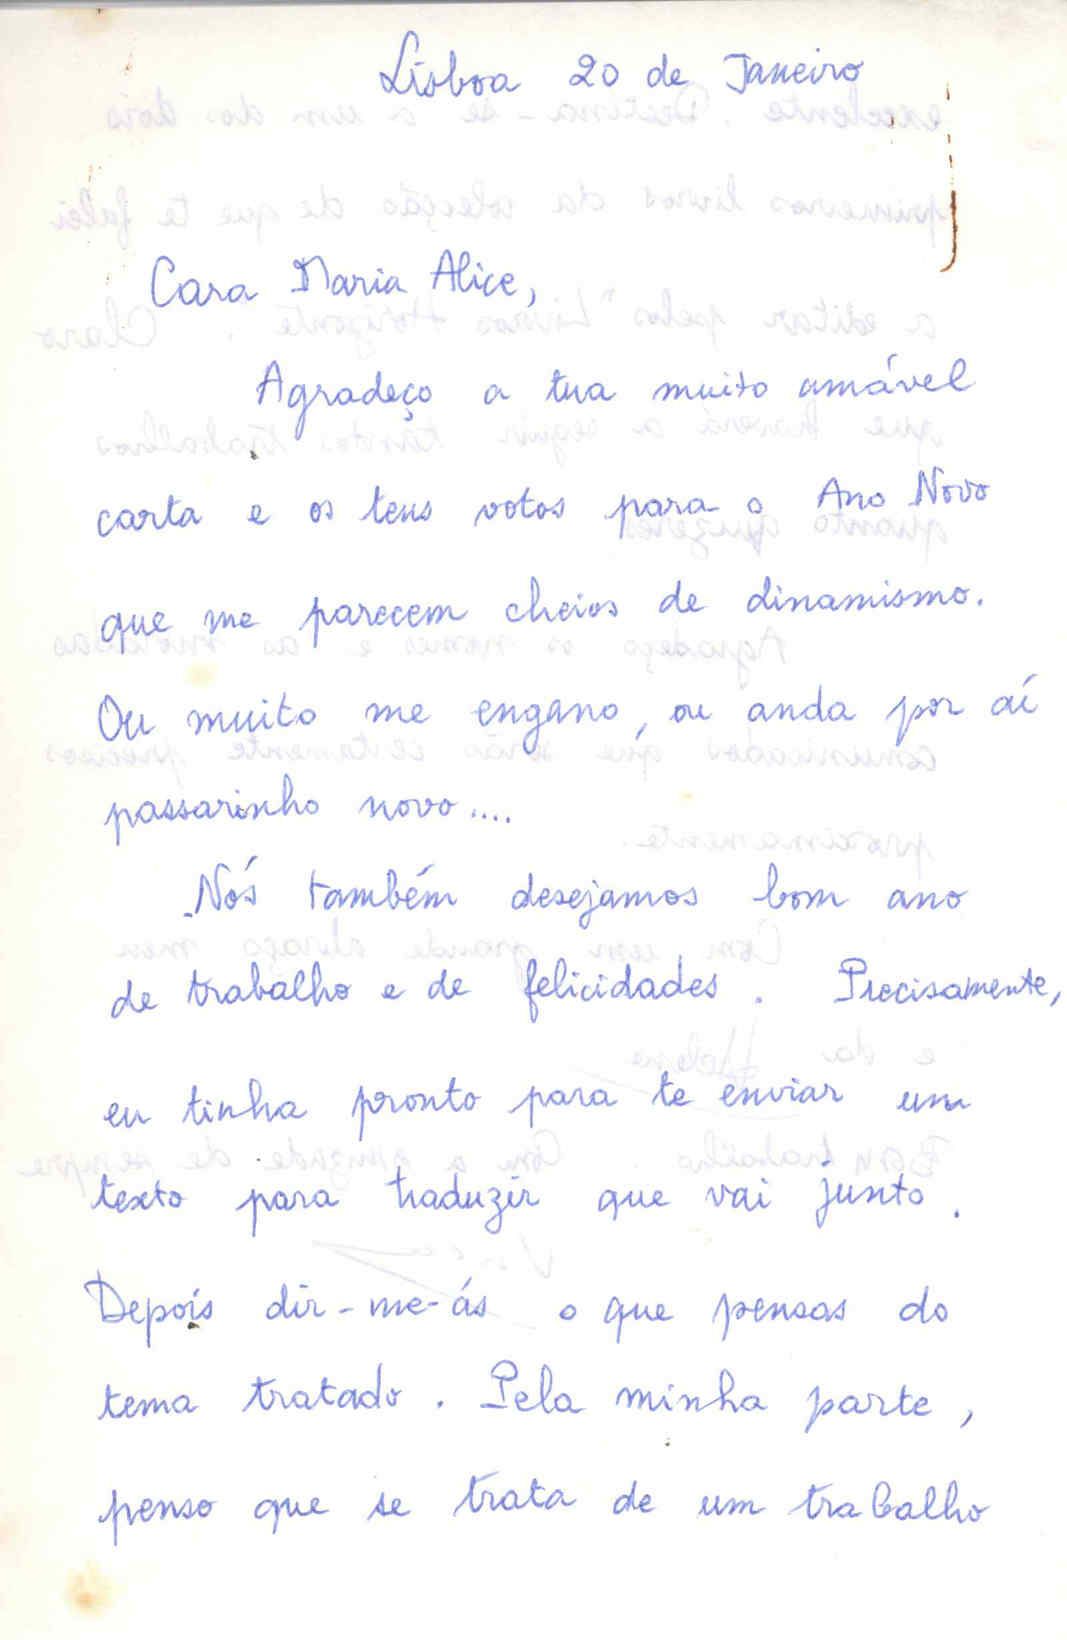 Lisboa 20 de Janeiro
Cara Maria Alice,
Agradeço a tua muito amável
carta e os teus votos para o Ano Novo
que me parecem cheios de dinamismo.
Ou muito me engano, ou anda por aí
passarinho novo....
Nós também desejamos bom ano
de trabalho e de felicidades. Precisamente,
eu tinha pronto para te enviar um
texto para traduzir que vai junto.
Depois dir-me-ás o que pensas do
tema tratado. Pela minha parte,
penso que se trata de um trabalho